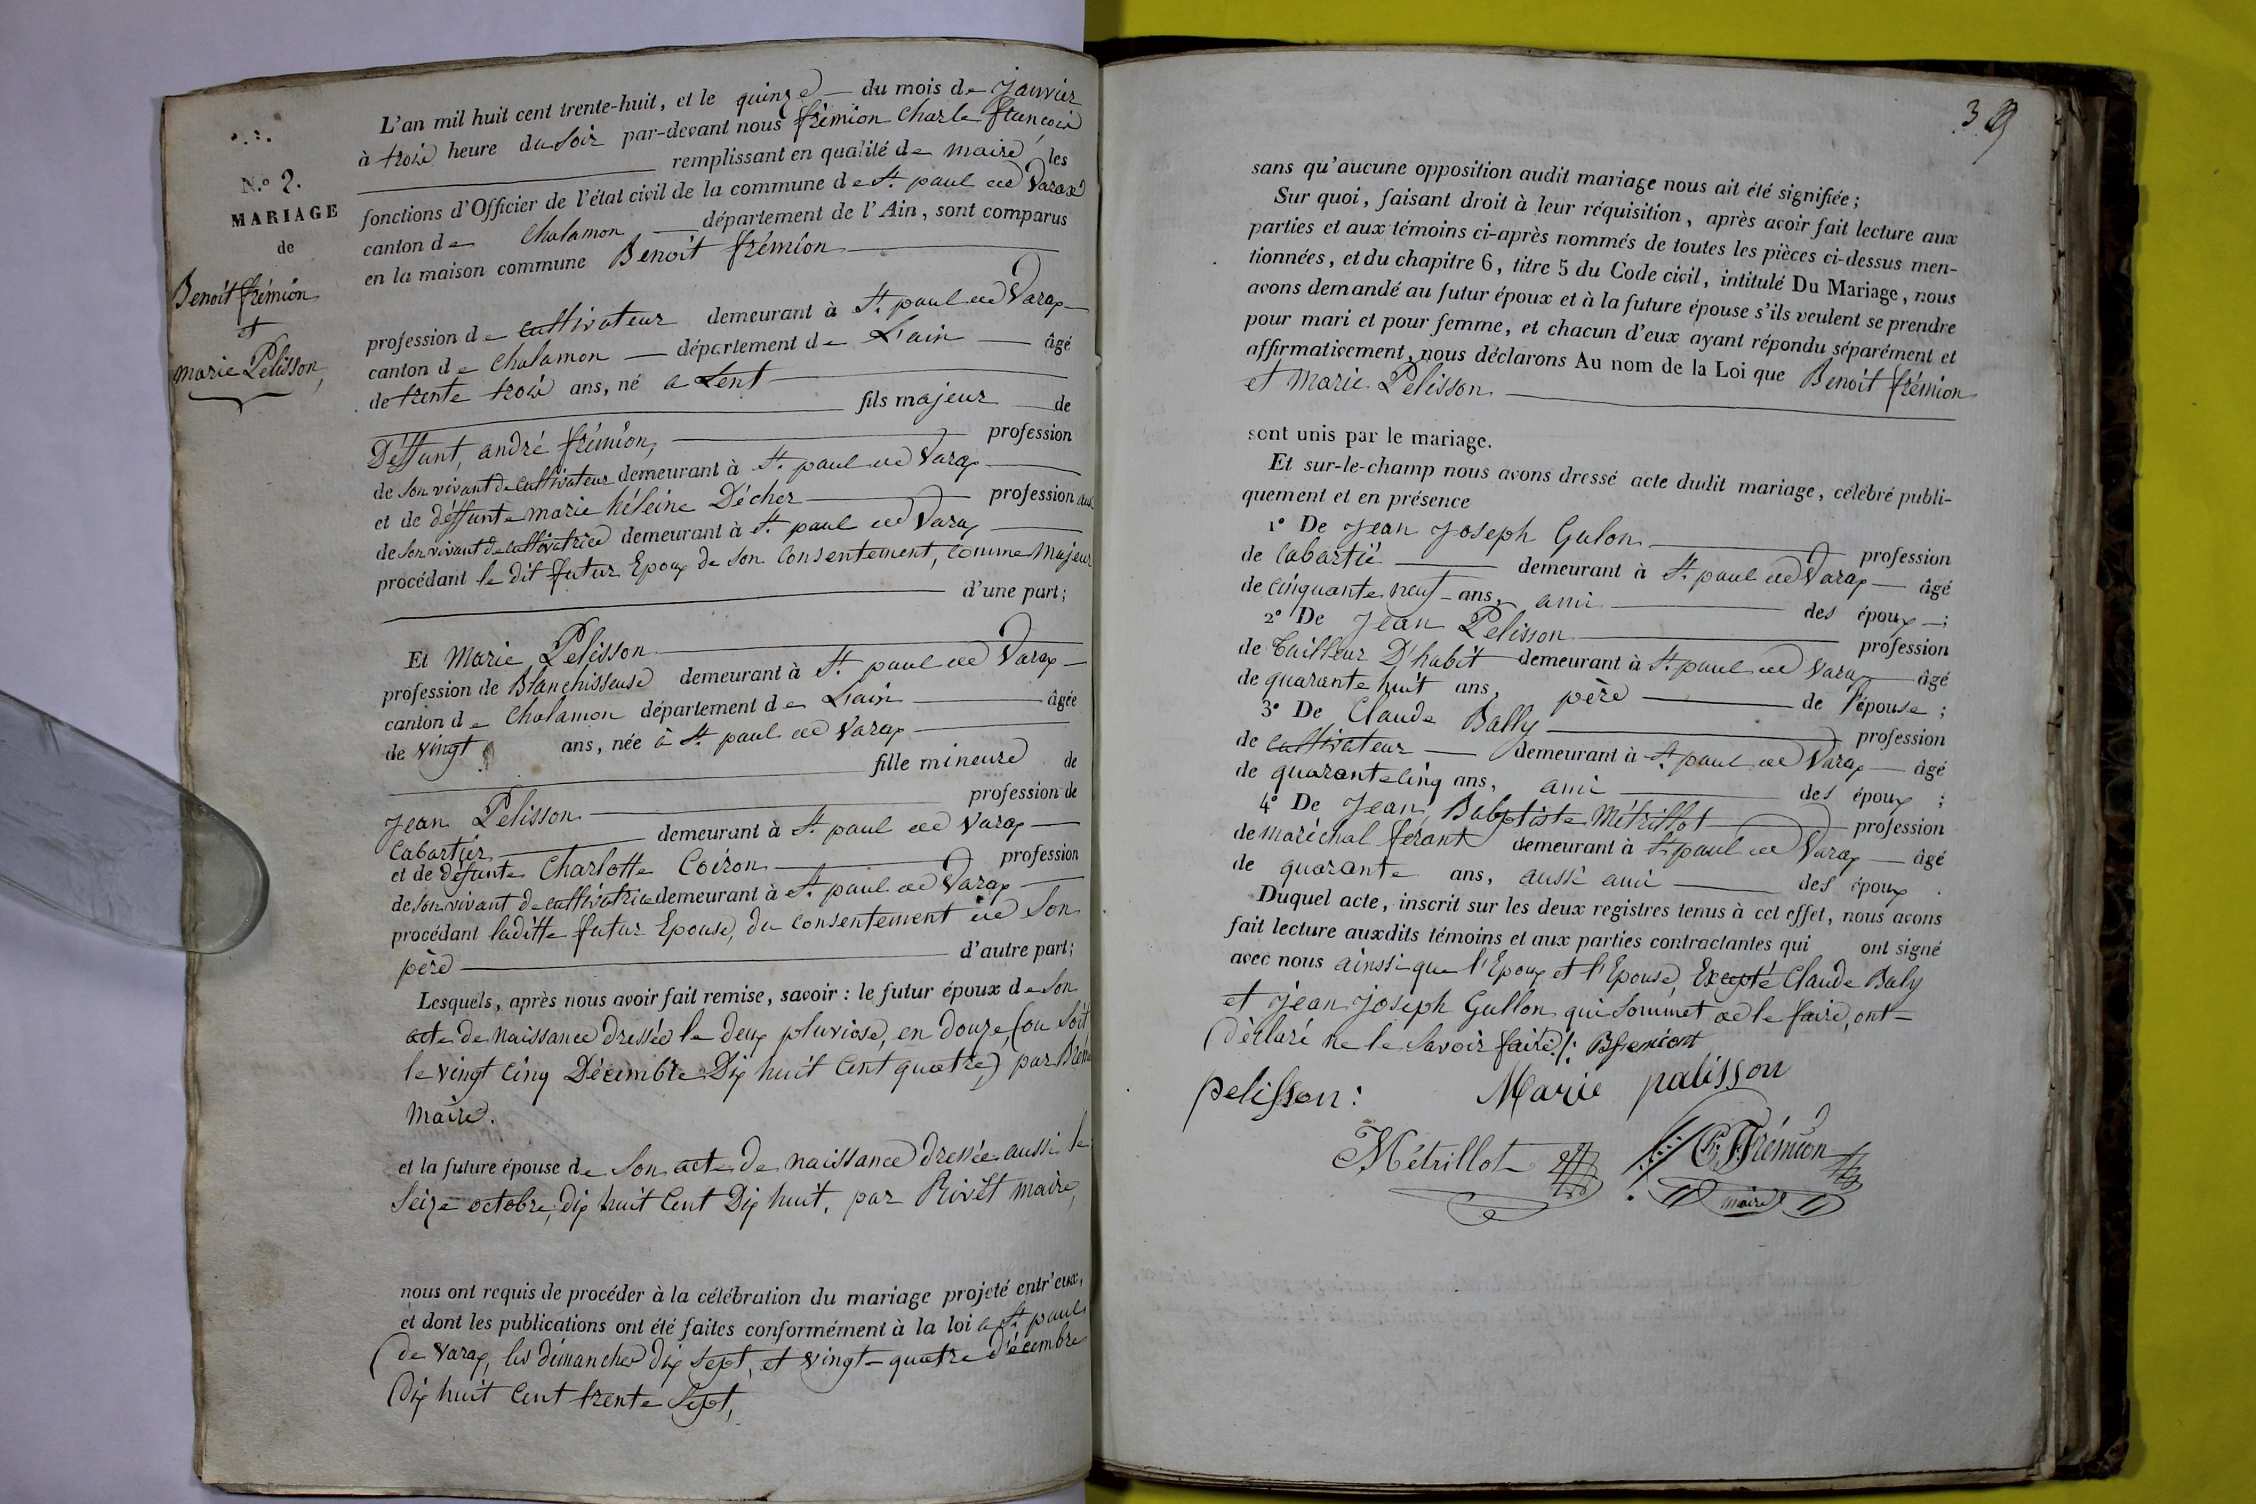 N.° 2.
MARIAGE
de
Benoit frémion
et
marie Pelisson,
L'an mil huit cent trente-huit, et le quinze du mois de janvier
à trois heure du soir par-devant nous frémion Charle françois
remplissant en qualité de maire, les
fonctions d'Officier de l'état civil de la commune de St. paul de Varax
canton de Chalamon département de l'Ain, sont comparus
en la maison commune Benoit frémion
profession de cultivateur demeurant à St. paul de Varax
canton de Chalamon département de L'ain âgé
de trente trois ans, né a Lent
fils majeur de
Déffunt, andré frémion, profession
de son vivant de cultivateur demeurant à St. paul de Varax
et de déffunte marie héleine Décher profession aussi
de son vivant de cultivatrice demeurant à St. paul de Varax
procédant le dit futur Epoux de son Consentement, comme Majeur
d'une part;
Et Marie Pelisson
profession de Blanchisseuse demeurant à St. paul de Varax
canton de Chalamon département de L'ain âgée
de vingt ans, née à St. paul de Varax
fille mineure de
Jean Pelisson profession de
Cabartier demeurant à St. paul de Varax
et de défunte Charlotte Coiron profession
de son vivant de cultivatrice demeurant à St. paul de Varax
procédant laditte futur Epouse, du consentement de Son
père d'autre part;
Lesquels, après nous avoir fait remise, savoir: le futur époux de Son
acte de naissance dressée le deux pluviose, en douze, (ou soit
le vingt cinq Décembre Dix huit Cent quatre) par
maire.
et la future épouse de Son acte de naissance dressée aussi le
Seize octobre, dix huit Cent Dix huit, par Rivet maire,
nous ont requis de procéder à la célébration du mariage projeté entr'eux,
et dont les publications ont été faites conformément à la loi a St. paul
de Varax, les dimanches dix sept, et vingt-quatre décembre
dix huit Cent trente Sept,
39
sans qu'aucune opposition audit mariage nous ait été signifiée;
Sur quoi, faisant droit à leur réquisition, après avoir fait lecture aux
parties et aux témoins ci-après nommés de toutes les pièces ci-dessus men-
tionnées, et du chapitre 6, titre 5 du Code civil, intitulé Du Mariage, nous
avons demandé au futur époux et à la future épouse s'ils veulent se prendre
pour mari et pour femme, et chacun d'eux ayant répondu séparément et
affirmativement, nous déclarons Au nom de la Loi que Benoit frémion
et Marie Pelisson
sont unis par le mariage.
Et sur-le-champ nous avons dressé acte dudit mariage, célébré publi-
quement et en présence
1° De Jean Joseph Gulon profession
de Cabartié demeurant à St. paul de Varax âgé
de cinquante neuf ans, ami des époux;
2° De Jean Pelisson profession
de Tailleur D'habit demeurant à St. paul de Varax âgé
de quarante huit ans, père de l'épouse;
3° De Claude Bally profession
de cultivateur demeurant à St. paul de Varax âgé
de quarante cinq ans, ami des époux;
4° De Jean Babptiste Métrillot profession
de maréchal ferant demeurant à St. paul de Varax âgé
de quarante ans, aussi ami des époux.
Duquel acte, inscrit sur les deux registres tenus à cet effet, nous avons
fait lecture auxdits témoins et aux parties contractantes qui ont signé
avec nous ainssi que l'Epoux et l'Epouse, Excepté Claude Baly
et Jean Joseph Gullon qui Sommet de le faire, ont
déclaré ne le Savoir faire /: Bfremiont
pelisson: Marie palisson
Métrillot Ch. F. Frémion
maire